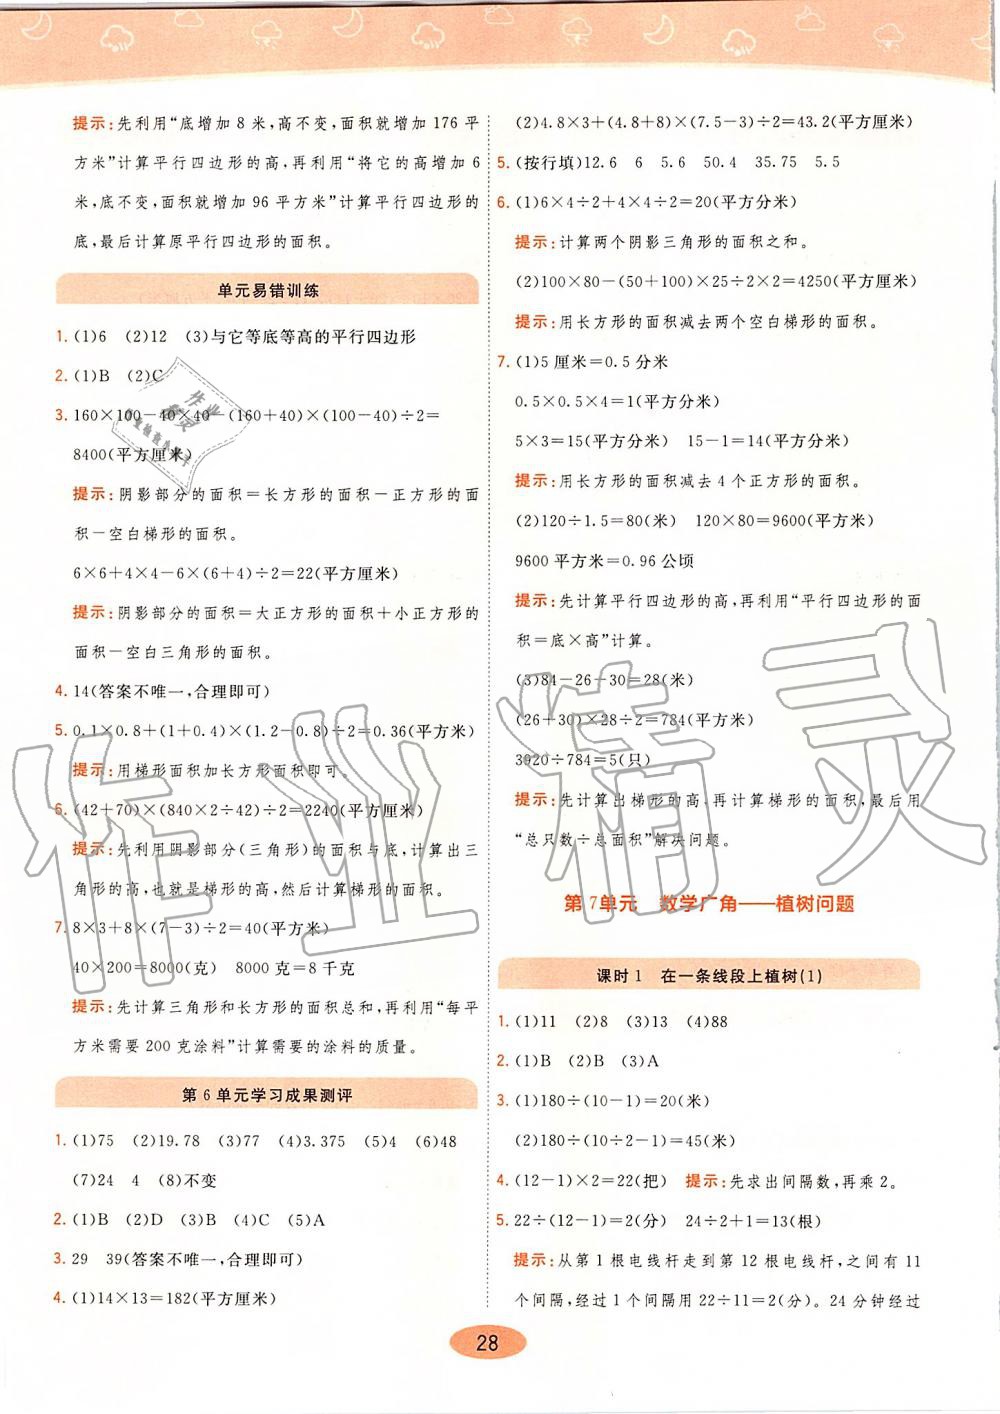 提示:先利用“底增加 8 米,高不变,面积就增加 176 平
方米”计算平行四边形的高,再利用“将它的高增加 6
米,底不变,面积就增加 96 平方米”计算平行四边形的
底,最后计算原平行四边形的面积。
单元易错训练
1. (1)6 (2)12 (3)与它等底等高的平行四边形
2. (1)B (2)C
3. 160×100-40×40-(160+40)×(100-40)÷2=
8400(平方厘米)
提示:阴影部分的面积=长方形的面积-正方形的面积
-空白梯形的面积。
6×6+4×4-6×(6+4)÷2=22(平方厘米)
提示:阴影部分的面积=大正方形的面积+小正方形的
面积-空白三角形的面积。
4. 14(答案不唯一,合理即可)
5. 0.1×0.8+(1+0.4)×(1.2-0.8)÷2=0.36(平方米)
提示:用梯形面积加长方形面积即可。
6. (42+70)×(840×2÷42)÷2=2240(平方厘米)
提示:先利用阴影部分(三角形)的面积与底,计算出三
角形的高,也就是梯形的高,然后计算梯形的面积。
7. 8×3+8×(7-3)÷2=40(平方米)
40×200=8000(克) 8000 克=8 千克
提示:先计算三角形和长方形的面积总和,再利用“每平
方米需要 200 克涂料”计算需要的涂料的质量。
第 6 单元学习成果测评
1. (1)75 (2)19.78 (3)77 (4)3.375 (5)4 (6)48
(7)24 4 (8)不变
2. (1)B (2)D (3)B (4)C (5)A
3. 29 39(答案不唯一,合理即可)
4. (1)14×13=182(平方厘米)
(2)4.8×3+(4.8+8)×(7.5-3)÷2=43.2(平方厘米)
5. (按行填)12.6 6 5.6 50.4 35.75 5.5
6. (1)6×4÷2+4×4÷2=20(平方分米)
提示:计算两个阴影三角形的面积之和。
(2)100×80-(50+100)×(80÷2)÷2=4250(平方厘米)
提示:用长方形的面积减去两个空白梯形的面积。
7. (1)5 厘米=0.5 分米
0.5×0.5×4=1(平方分米)
5×3=15(平方分米) 15-1=14(平方分米)
提示:用长方形的面积减去 4 个正方形的面积。
(2)120÷1.5=80(米) 120×80=9600(平方米)
9600 平方米=0.96 公顷
提示:先计算平行四边形的高,再利用“平行四边形的面
积=底×高”计算。
(3)84-26-30=28(米)
(26+30)×28÷2=784(平方米)
3920÷784=5(只)
提示:先计算出梯形的高,再计算梯形的面积,最后用
“总只数÷总面积”解决问题。
第 7 单元 数学广角——植树问题
课时 1 在一条线段上植树(1)
1. (1)11 (2)8 (3)13 (4)88
2. (1)B (2)B (3)A
3. (1)180÷(10-1)=20(米)
(2)180÷(10÷2-1)=45(米)
4. (12-1)×2=22(把) 提示:先求出间隔数,再乘 2。
5. 22÷(12-1)=2(分) 24÷2+1=13(根)
提示:从第 1 根电线杆走到第 12 根电线杆,之间有 11
个间隔,经过 1 个间隔用 22÷11=2(分)。24 分钟经过
28
作业精灵